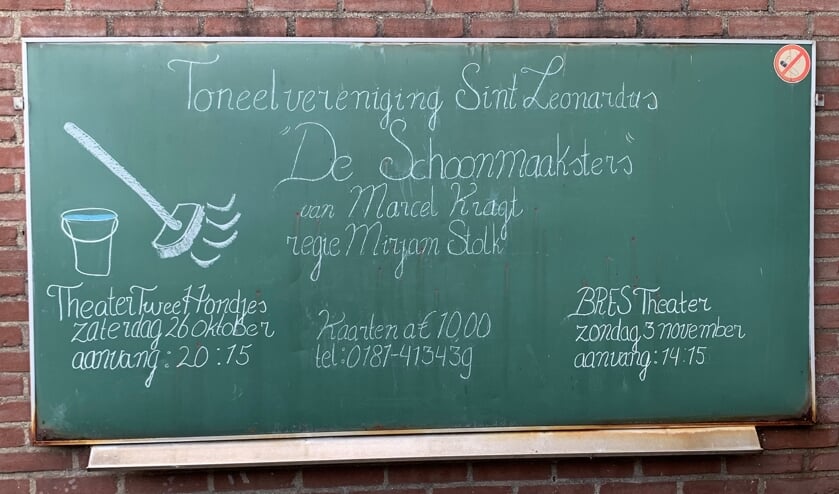 Toneelvereniging Sint Leonardus
"De Schoonmaaksters"
van Marcel Kragt
regie Mirjam Stolk
Theater Twee Hondjes
zaterdag 26 oktober
aanvang: 20:15
Kaarten a € 10,00
tel: 0187-413439
BRES Theater
zondag 3 november
aanvang: 14:15